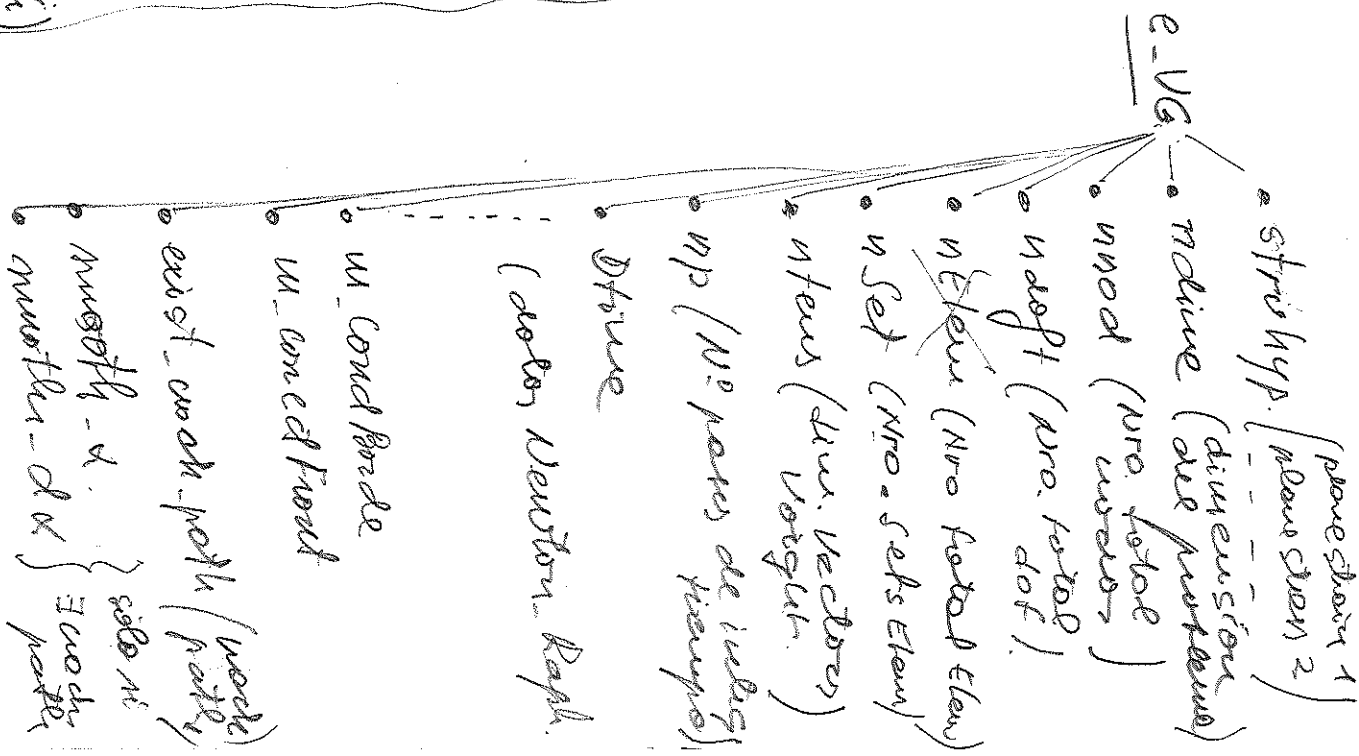 e_VG
• strihyp. (plane strain 1
plane stress 2)
- - - -
• ndime (dimensión
del problema)
• nnod (Nro. total
nodos)
• ndoft (Nro. total
dof)
• nElem (Nro total Elem)
• nSet (Nro. Sets Elem)
• ntens (dim. Vectores
Voigt)
• np (Nº pasos de
tiempo)
• Dtime
(datos Newton_Raph.
• m_CondBorde
• m_ConecFront
• exist_
• 
sólo si
∃